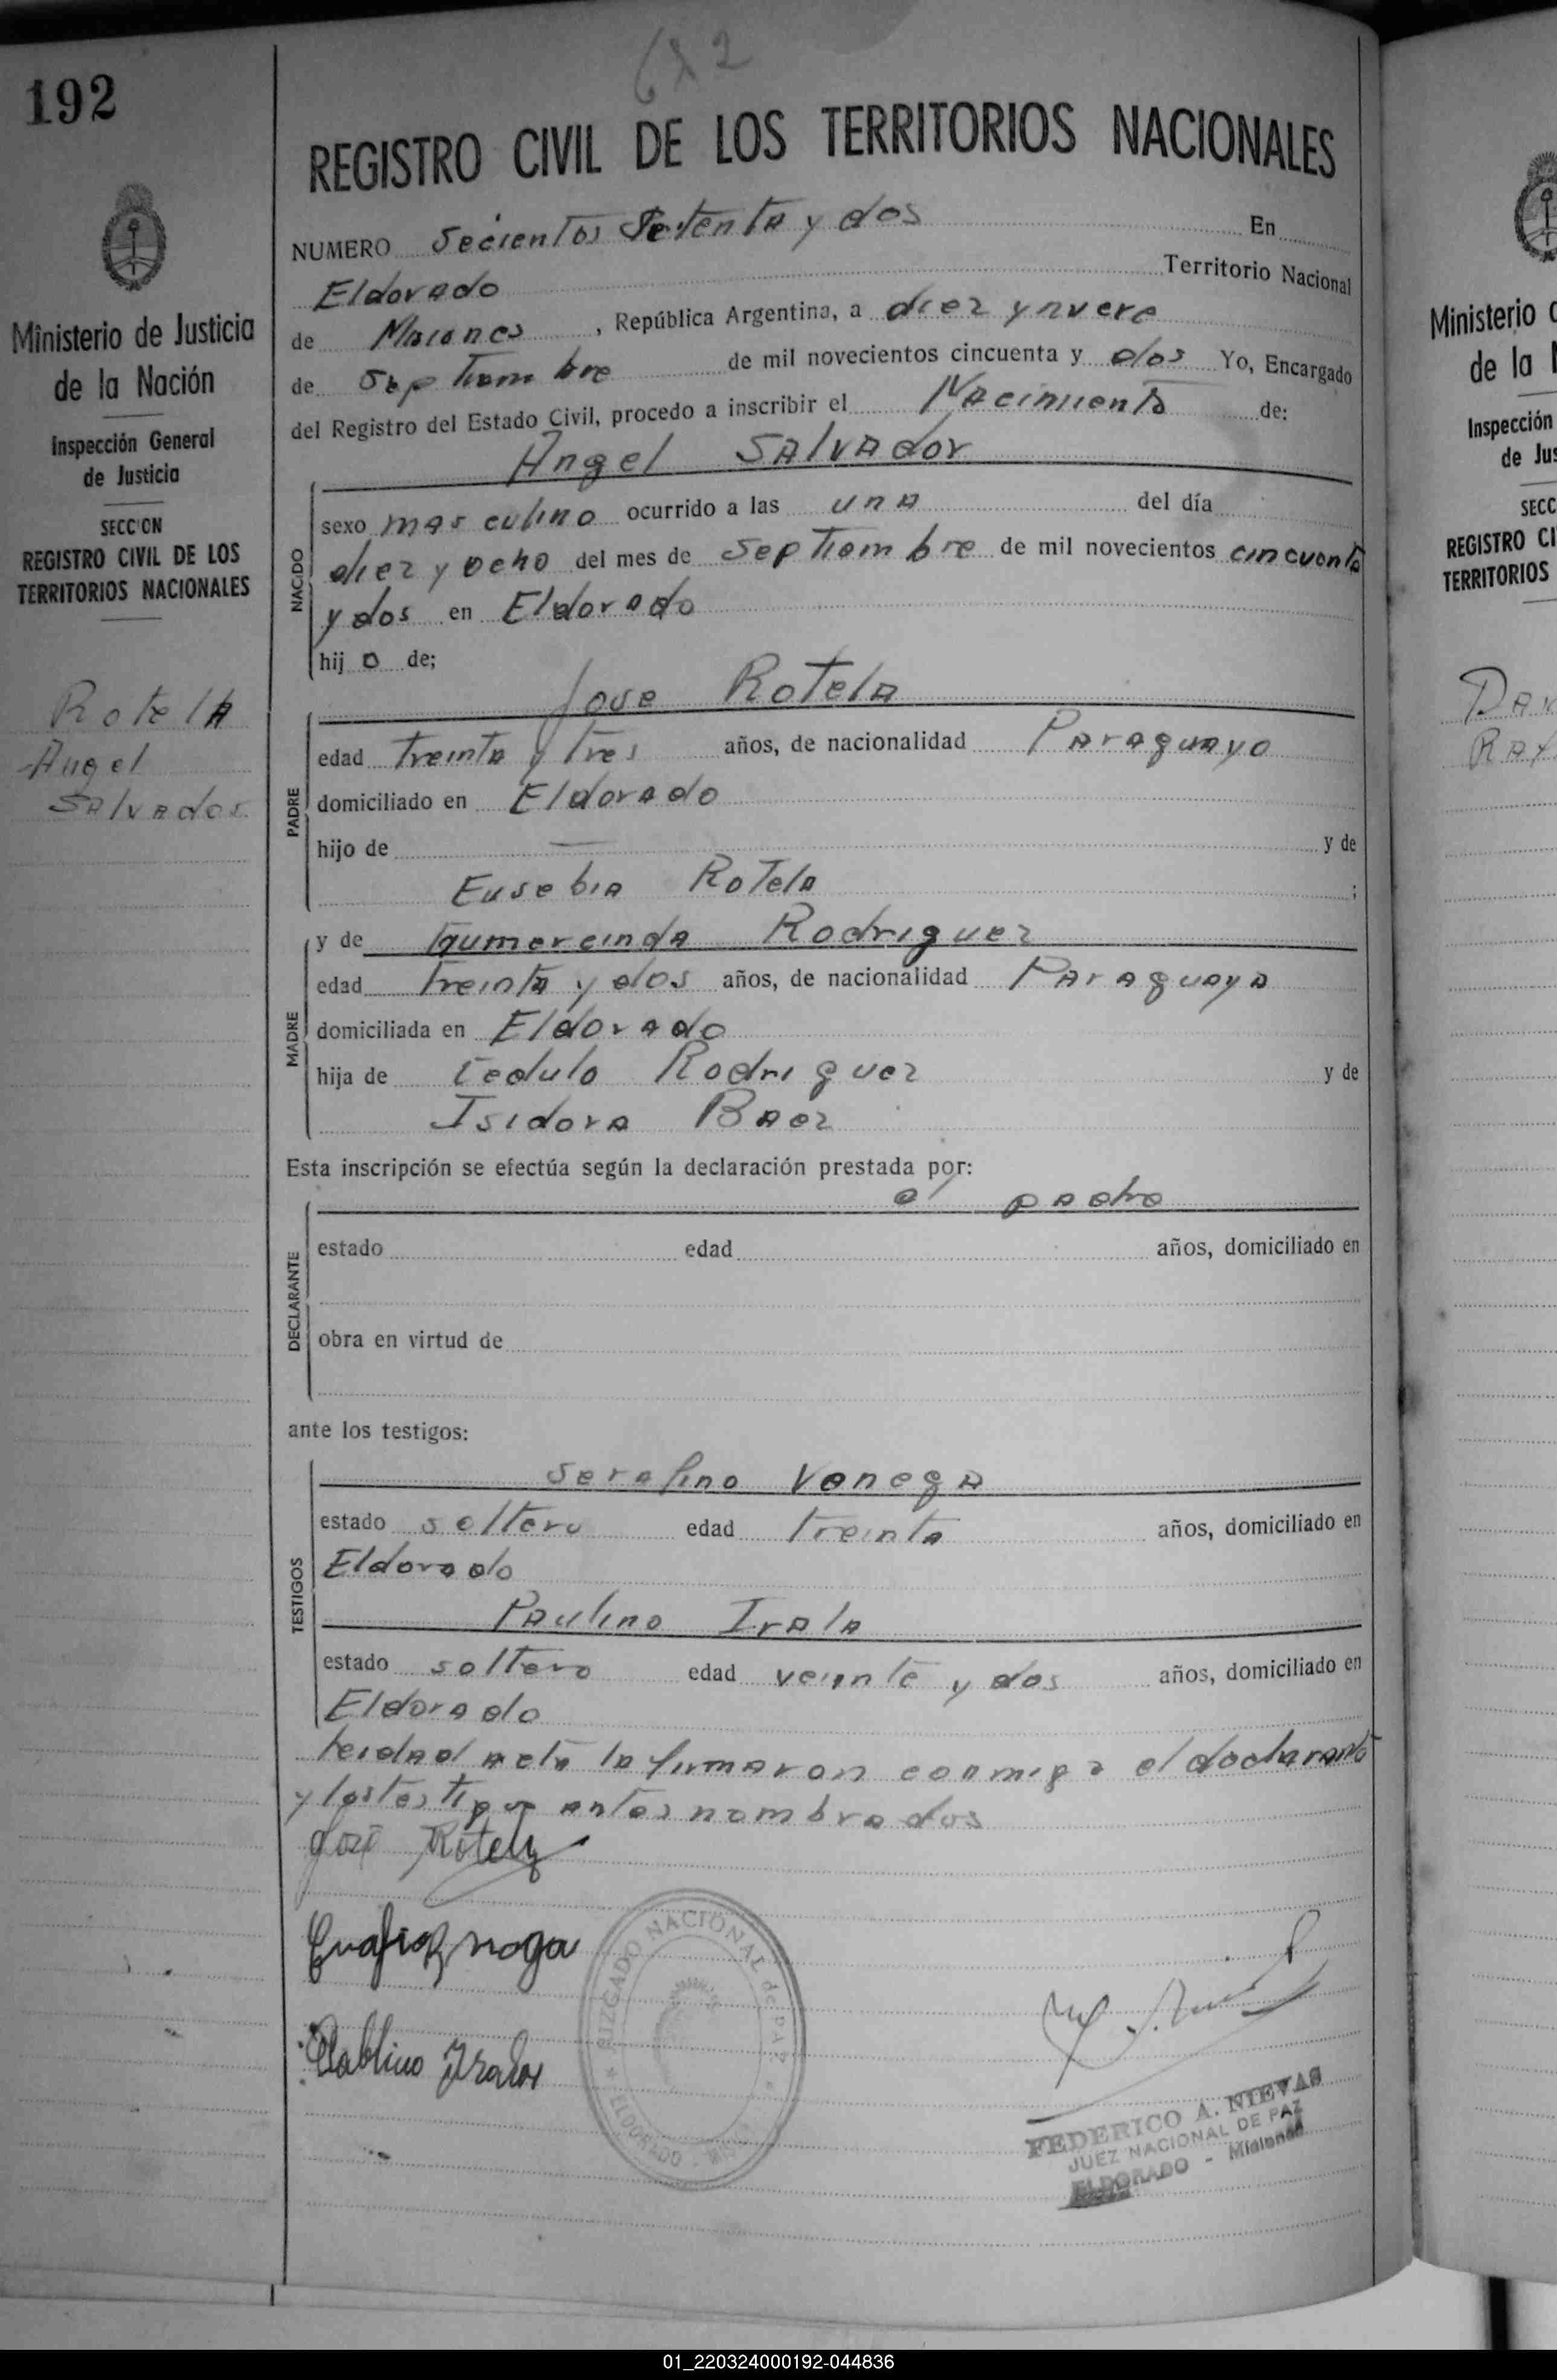 672
192
REGISTRO CIVIL DE LOS TERRITORIOS NACIONALES
NUMERO Secientos Setenta y dos En
Eldorado Territorio Nacional
de Misiones, República Argentina, a diez y nueve
de Septiembre de mil novecientos cincuenta y dos Yo, Encargado
del Registro del Estado Civil, procedo a inscribir el Nacimiento de:
Angel Salvador
NACIDO
sexo masculino ocurrido a las una del día
diez y ocho del mes de Septiembre de mil novecientos cincuenta
y dos en Eldorado
hijo de;
Jose Rotela
PADRE
edad treinta y tres años, de nacionalidad Paraguayo
domiciliado en Eldorado
hijo de — y de
Eusebia Rotela ;
MADRE
y de Gumercinda Rodriguez
edad treinta y dos años, de nacionalidad Paraguaya
domiciliada en Eldorado
hija de Teodulo Rodriguez y de
Isidora Baez
Esta inscripción se efectúa según la declaración prestada por:
el padre
DECLARANTE
estado edad años, domiciliado en
obra en virtud de
ante los testigos:
TESTIGOS
Serafino Venega
estado soltero edad treinta años, domiciliado en
Eldorado
Paulino Irala
estado soltero edad veinte y dos años, domiciliado en
Eldorado
leida el acta la firmaron conmigo el declarante
y los testigos antes nombrados
José Rotela
JUZGADO NACIONAL de PAZ
ELDORADO
FEDERICO A. NIEVAS
JUEZ NACIONAL DE PAZ
ELDORADO - Misiones
Ministerio de Justicia
de la Nación
Inspección General
de Justicia
SECCION
REGISTRO CIVIL DE LOS
TERRITORIOS NACIONALES
Rotela
Angel
Salvador
Ministerio
de la
Inspección
de Jus
SECC
REGISTRO CI
TERRITORIOS
01_220324000192-044836